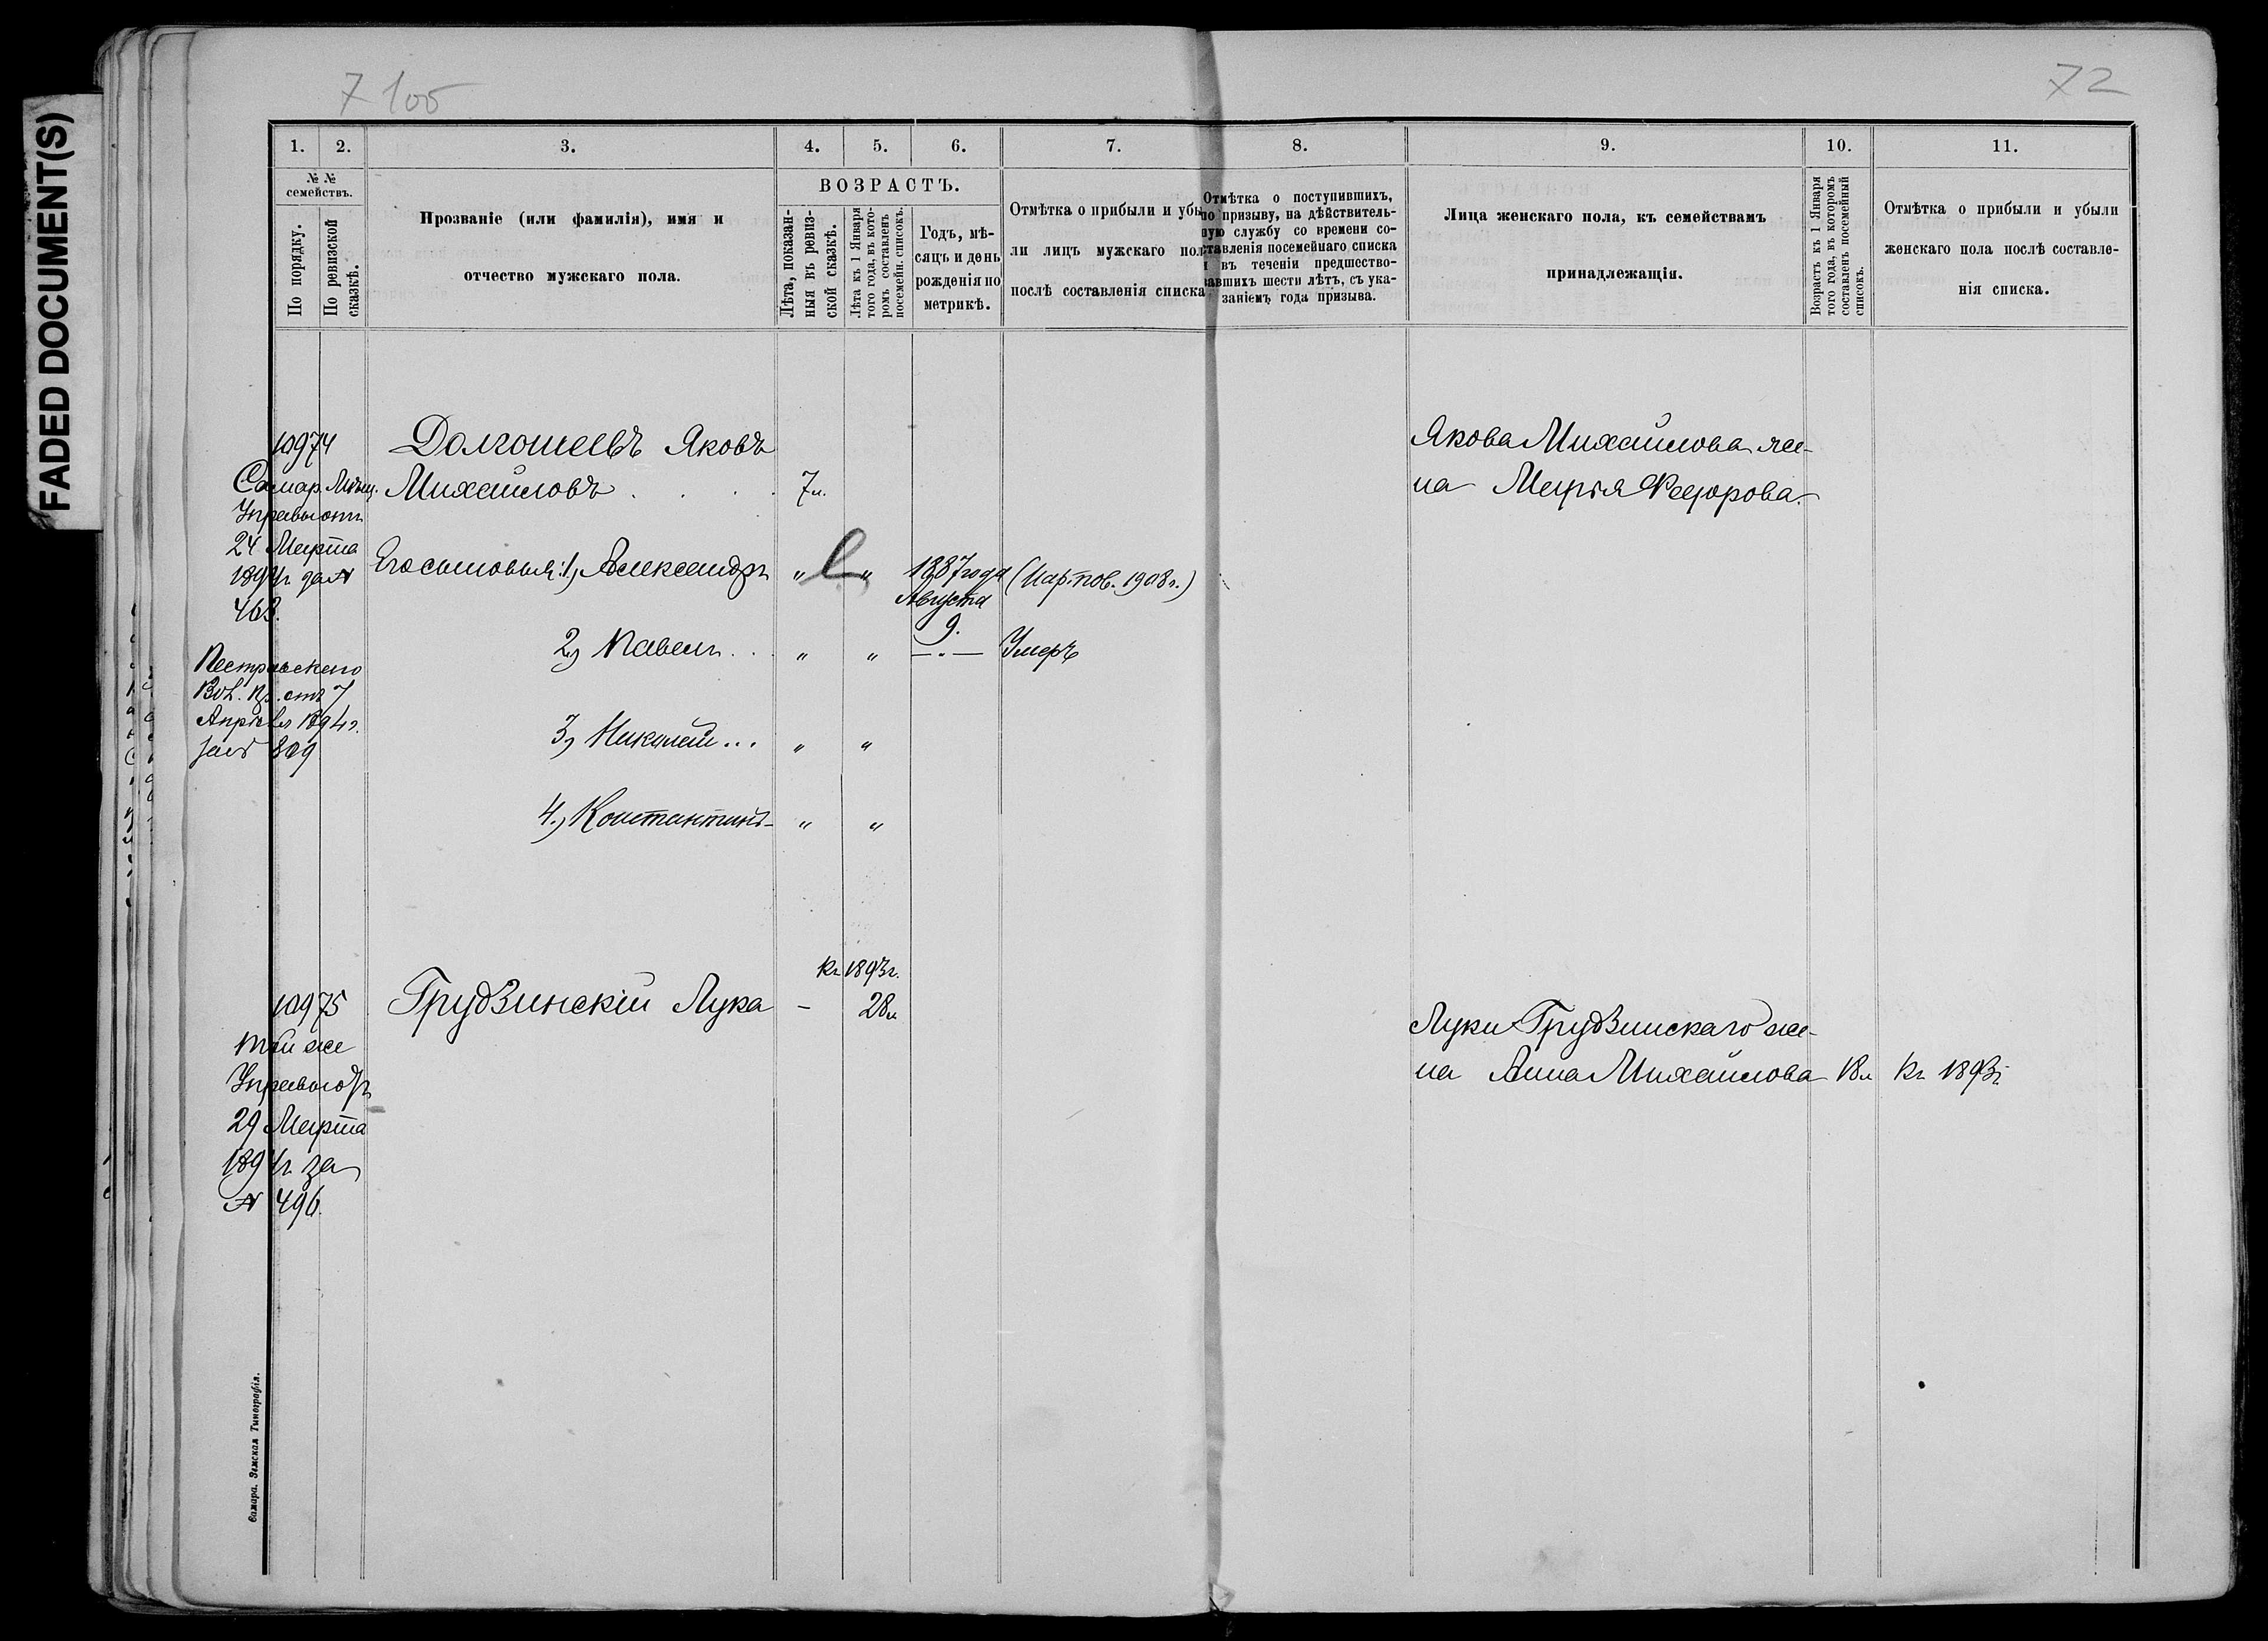 FADED DOCUMENT(S)
7 100
72
1. 2. 3. 4. 5. 6. 7. 8. 9. 10. 11.
№ №
семействъ.
По порядку.
По ревизской
сказкѣ.
Прозваніе (или фамилія), имя и
отчество мужскаго пола.
ВОЗРАСТЪ.
Лѣта, показан-
ныя въ ревиз-
ской сказкѣ.
Лѣта къ 1 Января
того года, въ кото-
ромъ составленъ
посемейн. списокъ.
Годъ, мѣ-
сяцъ и день
рожденія по
метрикѣ.
Отмѣтка о прибыли и убы-
ли лицъ мужскаго пола
послѣ составленія списка
Отмѣтка о поступившихъ,
по призыву, на дѣйствитель-
ную службу со времени со-
ставленія посемейнаго списка
и въ теченіи предшество-
вавшихъ шести лѣтъ, съ ука-
заніемъ года призыва.
Лица женскаго пола, къ семействамъ
принадлежащія.
Возрастъ къ 1 Января
того года, въ которомъ
составленъ посемейный
списокъ.
Отмѣтка о прибыли и убыли
женскаго пола послѣ составле-
нія списка.
10974
Самар. Мѣщ.
Управы отъ
24 Марта
1894г. за №
468.
Пестравскаго
Вол. Пр. отъ 7
Апрѣля 1894г.
за № 809
Долгошеевъ Яковъ
Михайловъ . . . . 7л.
Его сыновья: 1, Александръ " " 1887года
Августа
9.
2, Павелъ . . " " — " — Умеръ
3, Николай ... " "
4, Константинъ " "
Якова Михайлова же-
на Марія Федорова.
къ 1893г.
10975 Грудзинскій Лука - 28л
Той же
Управы отъ
29 Марта
1894г. за
№ 496.
Луки Грудзинскаго же-
на Анна Михайлова 18л къ 1893г
Самара. Земская Типографія.